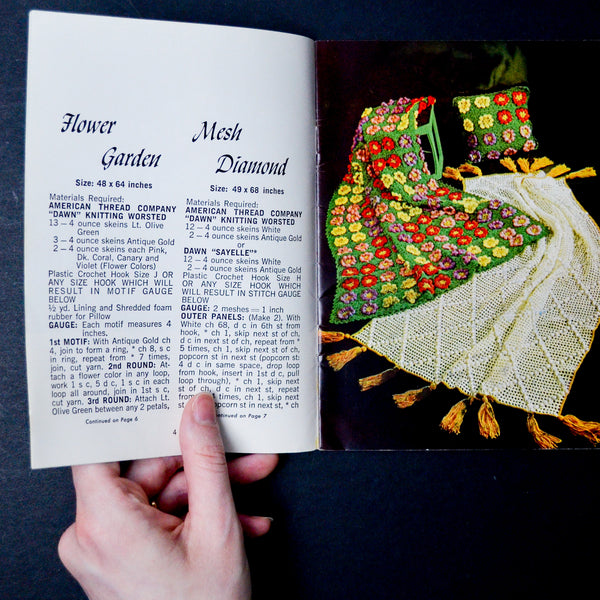 Flower
Garden
Size: 48 x 64 inches
Materials Required:
AMERICAN THREAD COMPANY
"DAWN" KNITTING WORSTED
13 — 4 ounce skeins Lt. Olive
Green
3 — 4 ounce skeins Antique Gold
2 — 4 ounce skeins each Pink,
Dk. Coral, Canary and
Violet (Flower Colors)
Plastic Crochet Hook Size J OR
ANY SIZE HOOK WHICH WILL
RESULT IN MOTIF GAUGE
BELOW
½ yd. Lining and Shredded foam
rubber for Pillow
GAUGE: Each motif measures 4
inches.
1st MOTIF: With Antique Gold ch
4, join to form a ring, * ch 8, s c
in ring, repeat from * 7 times,
join, cut yarn. 2nd ROUND: At-
tach a flower color in any loop,
work 1 s c, 5 d c, 1 s c in each
loop all around, join in 1st s c,
cut yarn. 3rd ROUND: Attach Lt.
Olive Green between any 2 petals,
Continued on Page 6
4
Mesh
Diamond
Size: 49 x 68 inches
Materials Required:
AMERICAN THREAD COMPANY
"DAWN" KNITTING WORSTED
12 — 4 ounce skeins White
2 — 4 ounce skeins Antique Gold
or
DAWN "SAYELLE"
12 — 4 ounce skeins White
2 — 4 ounce skeins Antique Gold
Plastic Crochet Hook Size H
OR ANY SIZE HOOK WHICH
WILL RESULT IN STITCH GAUGE
BELOW.
GAUGE: 2 meshes — 1 inch
OUTER PANELS: (Make 2). With
White ch 68, d c in 6th st from
hook, * ch 1, skip next st of ch,
d c in next st of ch, repeat from *
5 times, ch 1, skip next st of ch,
popcorn st in next st (popcorn st:
4 d c in same space, drop loop
from hook, insert in 1st d c, pull
loop through), * ch 1, skip next
st of ch, d c in next st, repeat
from * 4 times, ch 1, skip next
st, popcorn st in next st, * ch
Continued on Page 7